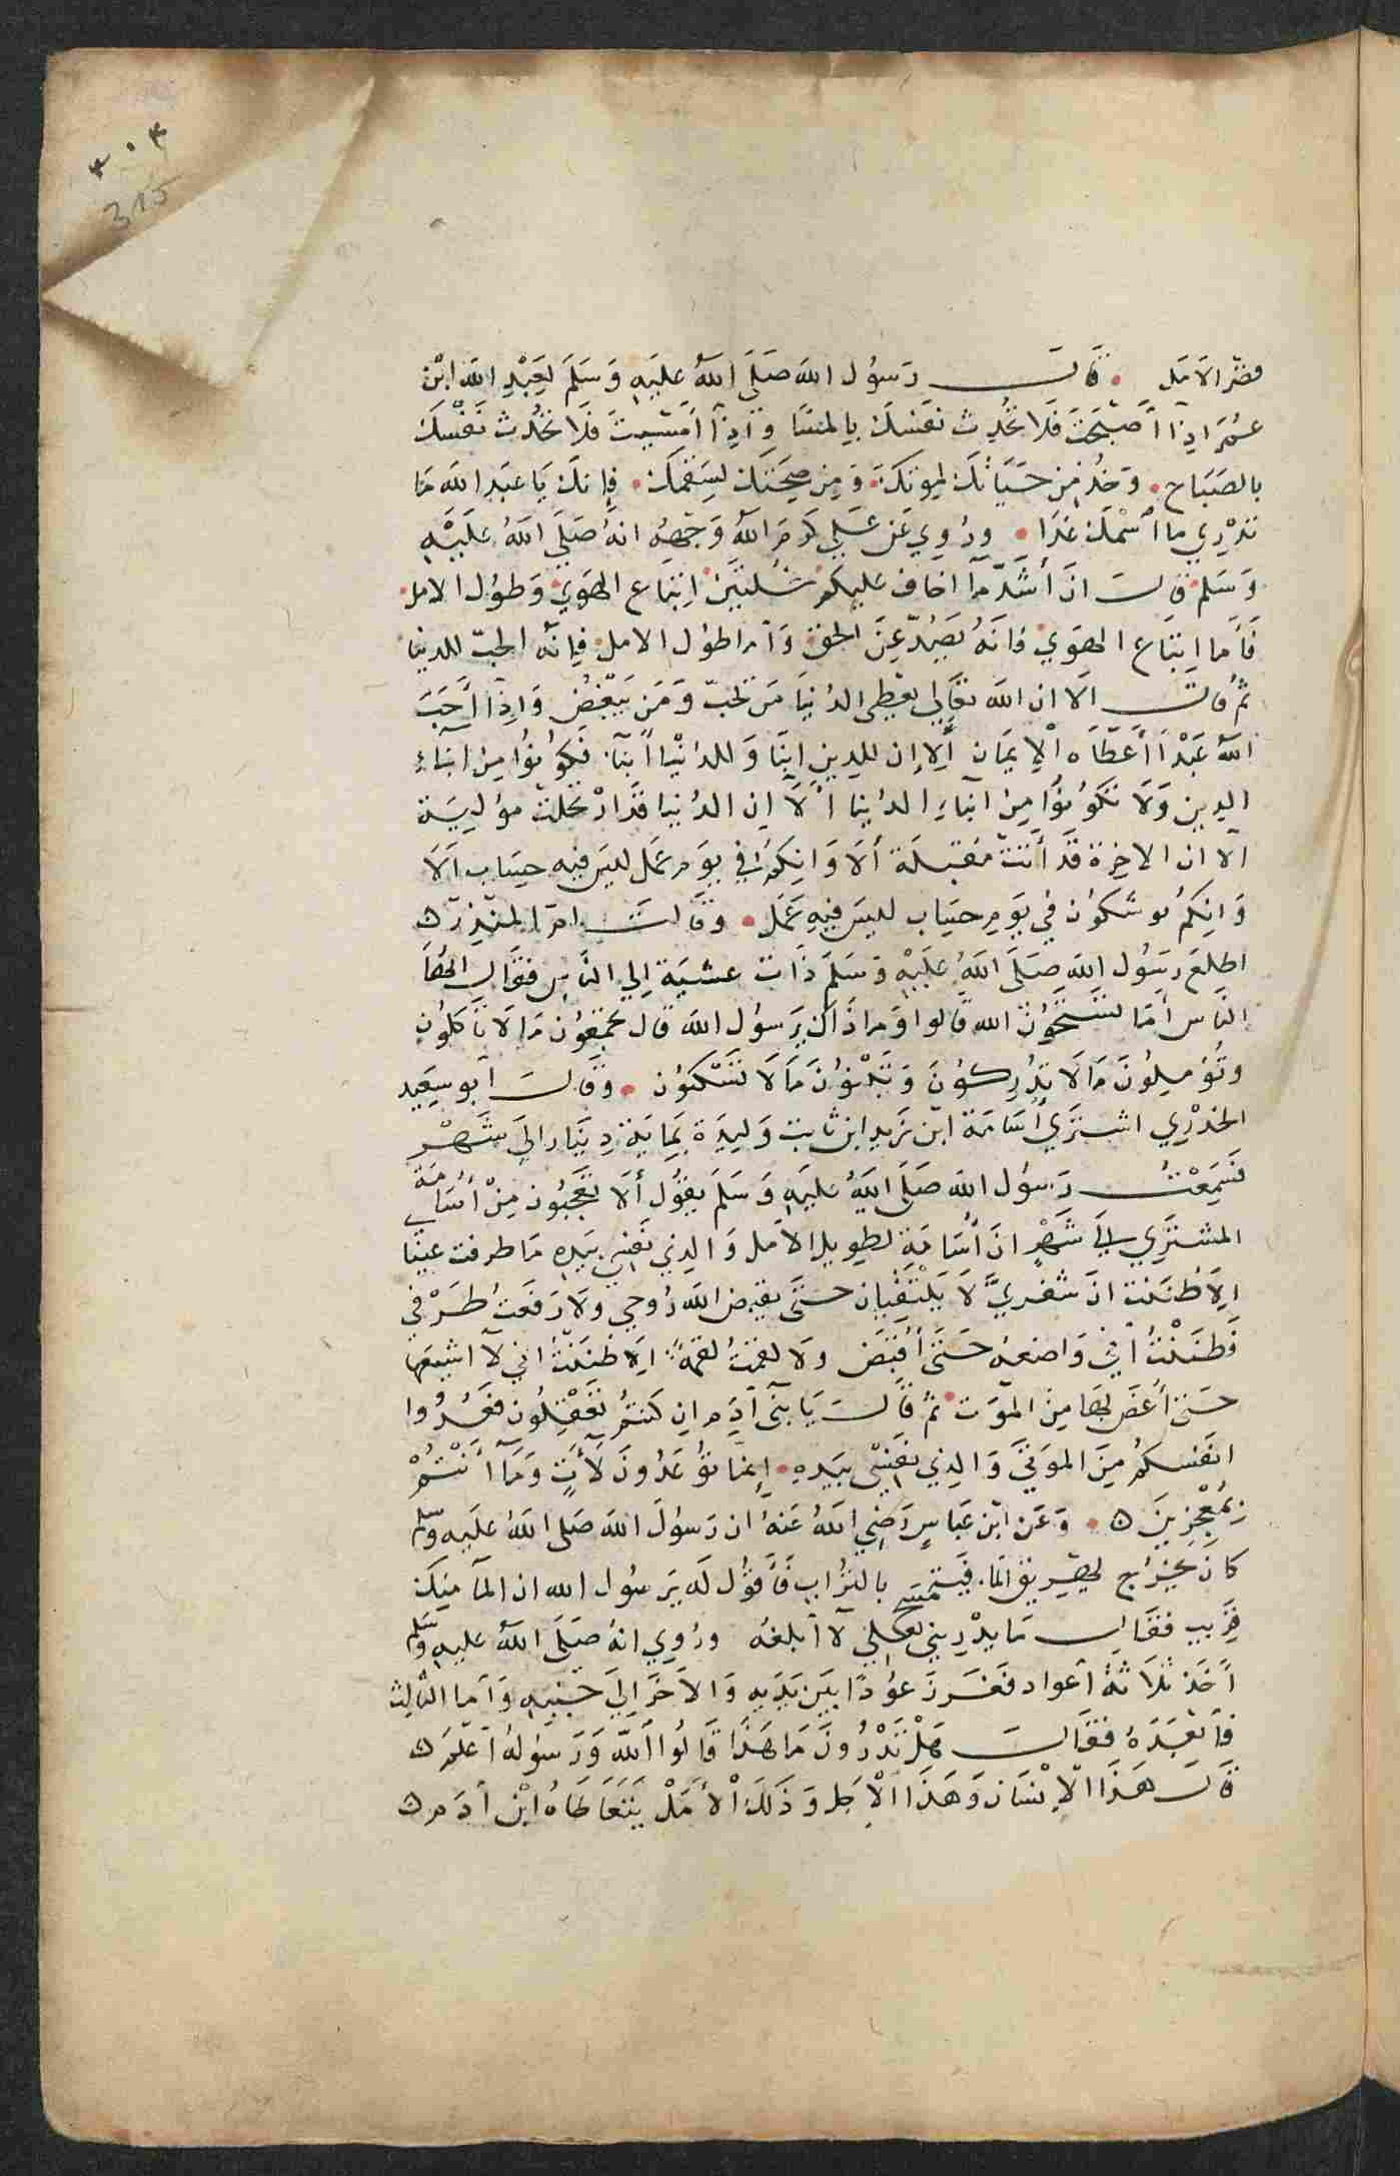 ٣٠٤
315
قصر الامل . قَالَ رَسوُل الله صَلَى اللهُ عليَهِ وَسَلَمَ لِعَبْدِ الله ابْن
عمُرَ اذِآ اَصْبَحَتَ فَلَا تحُدِث نفَسَكَ بِالمسَا وَآذِآ أمَسْيتَ فَلَا تحُدث نَفْسَكَ
بالصَبَاح . وَخُذ مِن حَيَاتكَ لموتكَ . وَمِن صِحَتكَ لسَقمكَ . فإنكَ يَا عَبَد الله مَا
تدْرِي ما اْسْمكَ غدَا . ورُوِي عَن عَلي كرمَ اللهُ وَجههُ انهُ صَلَى اللهُ علَيْهِ
وَسَلم قالَ انَ أشَدّ مَآ اخاف عليكم خصلتَين اِتبَاع الهوَي وَطوُل الامل .
فَأَما اِتبَاع الهوَي فانَهُ يَصُدّ عِنَ الحق وَامَا طوُل الامل فإنهُ الحبّ للدنيا
ثمُ قالَ اَلا ان الله تعَالي يعُطِي الدُنيَا مَن يحُبّ وَمَن يَبغضُ وَاِذَا أحَبَ
اللهُ عَبْدَا أَعَطاَه اْلإيمَان أَلا إن للدِين اَبنَا وَللدُنْيا أبنَآ فكوُنوُا مِن ابنَاءِ
الدِين وَلَا تكوُنوُا مِن ابَناءِ الدُنيا اْلَا ان الدُنيا قدَ ارْتحَلت موُليَة
اَلا ان الاخِرة قدَ أتَتْ مُقبلَة ألَا وَانِكمُ فِي يوَم عمَل ليسَ فيهِ حِسَاب ألَا
وَانِكمُ توشكوُن فيِ يوَمِ حِسَابٍ ليسَ فيهِ عمَل . وَقالتَ امَ المنُذِر ن
اطلعَ رَسوُل اللهِ صَلَى اللهُ علَيْهِ وَسَلَمَ ذَات عشيَة إلي النَاس فقال ايهُاَ
النَاس أمَا تسَتحَوُن الله قَالوا وَمَا ذَاك يرَسوُل الله قَال تجمعَوُن مَا لَا تَأكلوُن
وتُؤمِلوُن مَا لَا تُدرِكوُنَ وَتَبْنوُنَ مَا لَا تَسْكنوُن . وَقَالَ أبو سَعيِد
الخدْرِي اشترَي أُسَامَة ابْن زَيد ابن ثابت وَليِدَة بمِايَة دِينَار اِلىَ شَهْر
فَسَمِعْتُ رَسوُل الله صَلَى اللهُ عليَهِ وَسَلَمَ يقَوُل أَلا تعَجَبوُن مِنْ أُسَامَة
المشترَي إلَى شَهْرٍ انَ أُسَامَة لطوِيل الأمَل وَالذِي نَفسِي بيَدهِ مَا طرفت عينَا
إلَا ظننْت انَ شفريَّ لَا يَلْتقيَان حتَى يقبض الله رُوحِي ولَا رَفعَتُ طَرْفي
فَظنَنْتُ أني وَاضعهُ حَتَى أُقبَض ولَا لقمتُ لقمةً إلَا ظننَتُ اني لَا اسُيغهَا
حَتى أغَص بهَا مِن الموَت ثمُ قَالَ يَا بَنىِ آدَمَ ان كنتُم تعَقِلوُن فعَدُوا
انفسَكمُ مِنَ الموتَى وَالذِي نفَسِي بيَدهِ . إنمَا توُعَدُونَ لَأَتٍ وَمَآ أَنْتُمْ
بمُعْجِزِينَ ن . وَعَن ابْن عبَاسٍ رَضِيَ اللهُ عَنهُ ان رَسوُلَ اللهَ صَلى اللهُ عليَهِ وسلم
كانَ يخرُج يهُرِيق الما فيَتمَسَح بالترُابِ فَأَقوُل له يرَسوُل الله ان المآ مِنكَ
قرَيب فقَال مَا يدْرِيني لعَلي لَا ابلغهُ ورُوِي انهُ صَلَى اللهُ عليهِ وَسَلم
أخَذ ثلَاثةُ أَعواد فغَرزَ عوُدًا بيَن يَدَيهِ وَالاخَر إلَي جَنبهِ وَأَما الثالث
فأبعَدَهُ فقَالَ هَلْ تَدْرُونَ مَا هَذا قَالوُا الَلهُ وَرَسوُلهُ أعَلم ن
قَالَ هَذَا اْلإنْسَان وَهَذَا اْلأجَل وَذَلكَ اْلأَمَلْ يَتَعَاطَاهُ ابْن أَدَم ن